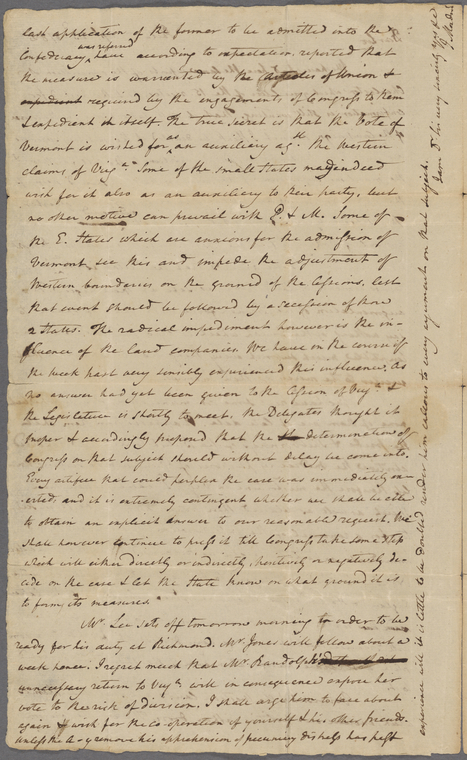 last application of the former to be admitted into the
Confederacy was referred have according to expectation reported that
the measure is warranted by the Articles of Union &
expedient required by the engagements of Congress to them
& expedient in itself. The true secret is that the Vote of
Vermont is wished for as an auxiliary agst the Western
claims of Virga. Some of the small States may indeed
wish for it also as an auxiliary to their party, but
no other motive can prevail with P. & M. Some of
the E. States which are anxious for the admission of
Vermont see this and impede the adjustment of
Western boundaries on the ground of the Cessions, lest
that event should be followed by a secession of those
2 States. The radical impediment however is the in-
fluence of the land companies. We have in the course of
the week past very sensibly experienced this influence. As
no answer had yet been given to the Cession of Virga &
the Legislature is shortly to meet, the Delegates thought it
proper & accordingly proposed that the determination of
Congress on that subject should without delay be come into.
Every artifice that could perplex the case was immediately ex-
erted; and it is extremely contingent whether we shall be able
to obtain an explicit answer to our reasonable request. We
shall however continue to press it till Congress take some step
which will either directly or indirectly, positively or negatively de-
cide on the case & let the State know on what ground it is
to form its measures.
Mr. Lee sets off tomorrow morning in order to be
ready for his duty at Richmond. Mr Jones will follow about a
week hence. I regret much that Mr. Randolph's
unnecessary return to Virga. will in consequence expose her
vote to the risk of division. I shall urge him to face about
again & wish for the Co-operation of yourself & his other friends.
Unless the A-y remove his apprehension of pecuniary distress his past
experience will it is little to be doubted render him callous to every argument on that subject.
I am Dr. Sir very sincerely yrs &c
J. Madison